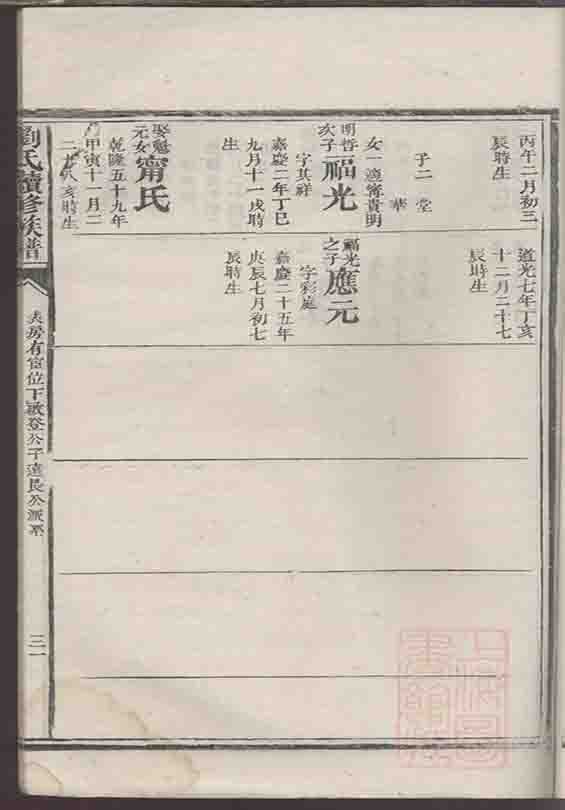 丙午二月初三
辰時生
子二 堂
華
女一適甯貴明
明哲
次子
福光
字其祥
嘉慶二年丁巳
九月十一戌時
生
娶魁
元女
甯氏
乾隆五十九年
甲寅十一月二
亥時生
道光七年丁亥
十二月二十七
辰時生
福光
之子
應元
字彩庭
嘉慶二十五年
庚辰七月初七
辰時生
劉氏續修族譜
房有富位下敏登公子達長公派系
三一
上海圖書館藏